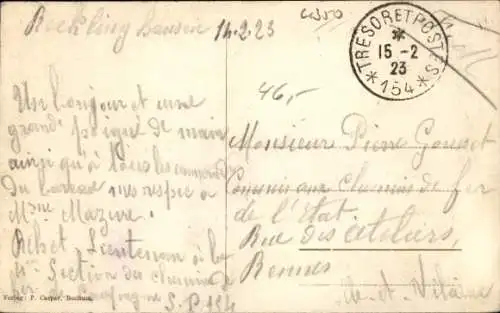 Recklinghausen 14.2.23
TRESOR ET POSTES
15 - 2
23
* 154 *
46,-
Un bonjour et une
grande poignée de main
ainsi qu'à tous les camarades
du bureau mes respects à
Mme Mazure.
Lieutenant à la
4e Section du chemin de
fer de campagne S.P. 154
Monsieur Pierre
Commis aux Chemins de fer
de l'Etat
Rue des Ateliers,
Rennes
Ille-et-Vilaine
Verlag: F. Carper, Bochum.